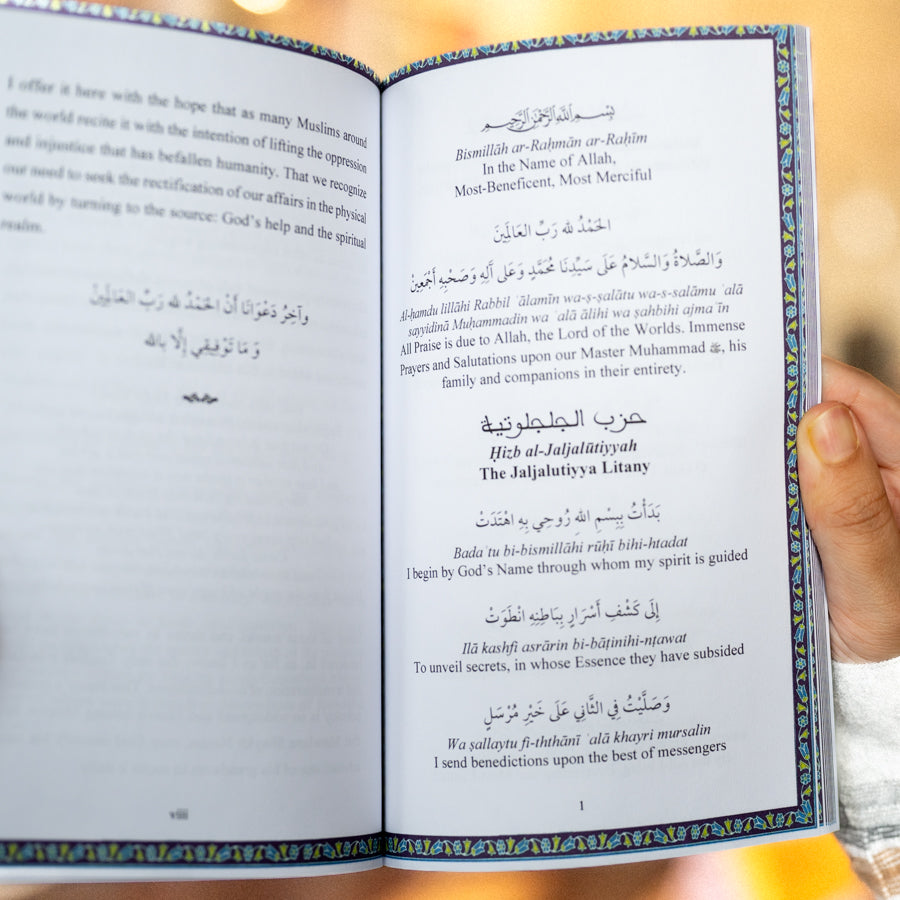 I offer it here with the hope that as many Muslims around
the world recite it with the intention of lifting the oppression
and injustice that has befallen humanity. That we recognize
our need to seek the rectification of our affairs in the physical
world by turning to the source: God's help and the spiritual
realm.
وَآخِرُ دَعْوَانَا أَنْ الحَمْدُ لله رَبِّ العَالَمِيْنَ
وَ مَا تَوْفِيقِي إِلَّا بالله
viii
بِسْمِ اللهِ الرَّحْمَنِ الرَّحِيمِ
Bismillāh ar-Raḥmān ar-Raḥīm
In the Name of Allah,
Most-Beneficent, Most Merciful
الحَمْدُ لله رَبِّ العَالَمِيْنَ
وَالصَّلَاةُ وَالسَّلَامُ عَلَى سَيِّدِنَا مُحَمَّدٍ وَعَلَى آلِهِ وَصَحْبِهِ أَجْمَعِيْنَ
Al-ḥamdu lillāhi Rabbil ʿālamīn wa-ṣ-ṣalātu wa-s-salāmu ʿalā
sayyidinā Muḥammadin wa ʿalā ālihi wa ṣahbihi ajmaʿīn
All Praise is due to Allah, the Lord of the Worlds. Immense
Prayers and Salutations upon our Master Muhammad ﷺ, his
family and companions in their entirety.
حزب الجلجلوتية
Ḥizb al-Jaljalūtiyyah
The Jaljalutiyya Litany
بَدَأْتُ بِبِسْمِ اللهِ رُوحِي بِهِ اهْتَدَتْ
Badaʾtu bi-bismillāhi rūḥī bihi-htadat
I begin by God's Name through whom my spirit is guided
إِلَى كَشْفِ أَسْرَارٍ بِبَاطِنِهِ انْطَوَتْ
Ilā kashfi asrārin bi-bāṭinihi-nṭawat
To unveil secrets, in whose Essence they have subsided
وَصَلَّيْتُ فِي الثَّانِي عَلَى خَيْرِ مُرْسَلٍ
Wa ṣallaytu fi-ththānī ʿalā khayri mursalin
I send benedictions upon the best of messengers
1